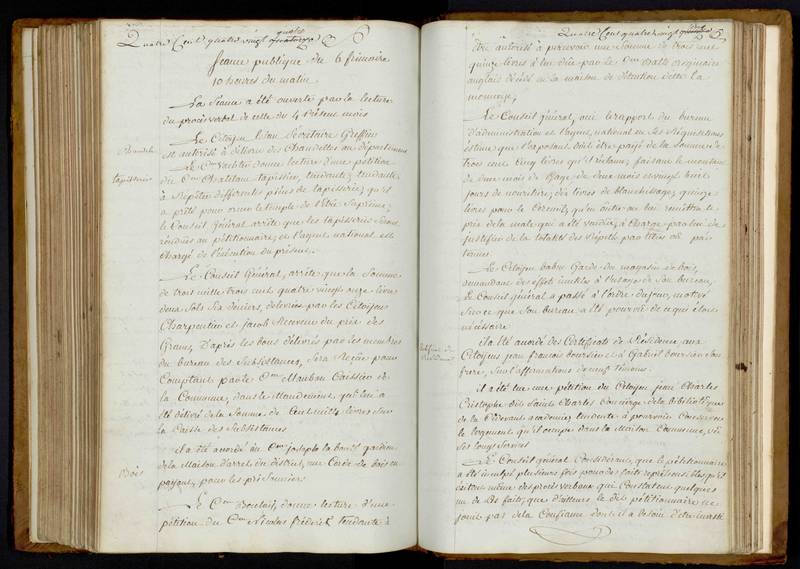 Quatre Cent quatre vingt quatre
Seance publique du 6 frimaire
10 heures du matin
La Séance a été ouverte par la lecture
du procès verbal de celle du 4 présent mois
Chandele
Le Citoyen Secrétaire Greffier
est autorisé à délivrer des Chandelles au département
tapisseries
Le Cen donne lecture d'une pétition
du Cen Chatelain tapissier, tendante, tendante
à Répéter différentes pièces de tapisserie, qu'il
a prêté pour orner le temple de l'Etre Suprême;
le Conseil Général arrête que les tapisseries Seront
rendües au pétitionnaire, et l'agent national est
chargé de l'exécution du présent.
Le Conseil Général, arrête que la Somme
de trois mille trois cent quatre vingt onze livres
deux Sols Six deniers, délivrées par les Citoyens
Charpentier et Jacob Receveur du prix des
Grains, D'après les bons délivrés par les membres
du bureau des Subsistances, Sera Reçüe pour
Comptant par le Cen Maubon Caissier de
la Commune, dans le Mandement, qui lui a
été délivré de la Somme de Cent mille livres sur
la Caisse des Subsistances
Bois
il a été accordé au Cen Joseph gardien
de la Maison d'arrêt du district, une Corde de bois en
payant, pour les prisonniers
Le Cen donne lecture d'une
pétition du Cen Nicolas frédérick tendante à
Quatre Cent quatre vingt
être autorisé à percevoir une Somme de trois cent
quinze livres à lui düe par le Cen originaire
anglais décédé en la maison de détention dette la
monnoye;
Le Conseil général, oui le rapport du bureau
d'administration et l'agent national en Ses Réquisitions
estime que l'exposant doit être payé de la Somme de
trois cent Cinq livres qu'il réclame, faisant le montant
de deux mois de Gage de deux mois et vingt huit
jours de nourriture, dix livres de blanchissage, quinze
livres pour le Cercueil, qu'en outre on lui remettra le
prix de la male qui a été vendüe, à Charge par lui de
justifier de la totalité des Dépôts par titres ou par
temoins
Le Citoyen babin Garde du magasin de bois,
demandant des effets inutiles à l'usage de Son bureau,
le Conseil général a passé à l'ordre du jour, motivé
Sur ce que Son bureau a été pourvû de ce qui étoit
nécessaire
Certificat de
Résidence
il a été acordé des Certificats de Résidence aux
Citoyens jean françois boursier et à Gabriel boursier Son
frere, Sur l'affirmation de neuf témoins.
il a été lue une pétition du Citoyen jean Charles
Cristophe dit Saint Charles Concierge de la bibliotèque
de la Cidevant académie, tendante à pouvoir Conserver
le logement qu'il occupe dans la Maison Commune, vû
Ses longs Services
Le Conseil général Considérant, que le pétitionnaire
a été inculpé plusieurs fois pour des faits répréhensibles, qu'il
existe même des procès verbaux qui Constatent quelques
un de ces faits, que d'ailleurs le dit pétitionnaire ne
jouit pas de la Confiance dont il a besoin d'être investi